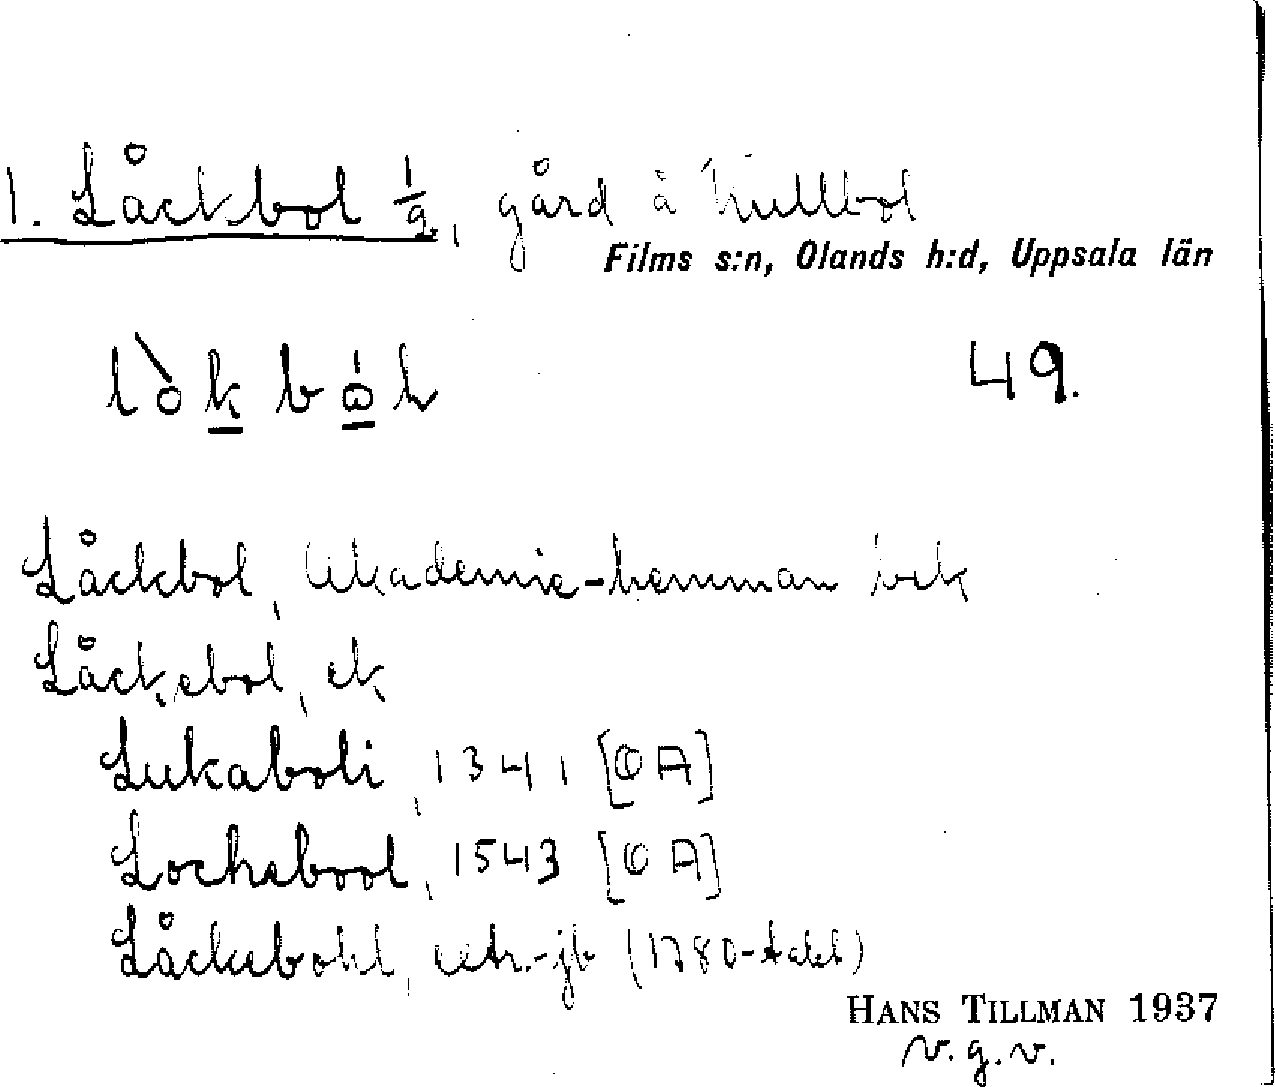 1. Låckbol ½, gård å hullbol
Films s:n, Olands h:d, Uppsala län
lòkból
49.
Låckbol, Akademie-hemman bek
Låckebol, ek
Lukaboli, 1341 [OA]
Lockebool, 1543 [OA]
Låckebohl, -jb (1780-talet)
HANS TILLMAN 1937
v.g.v.